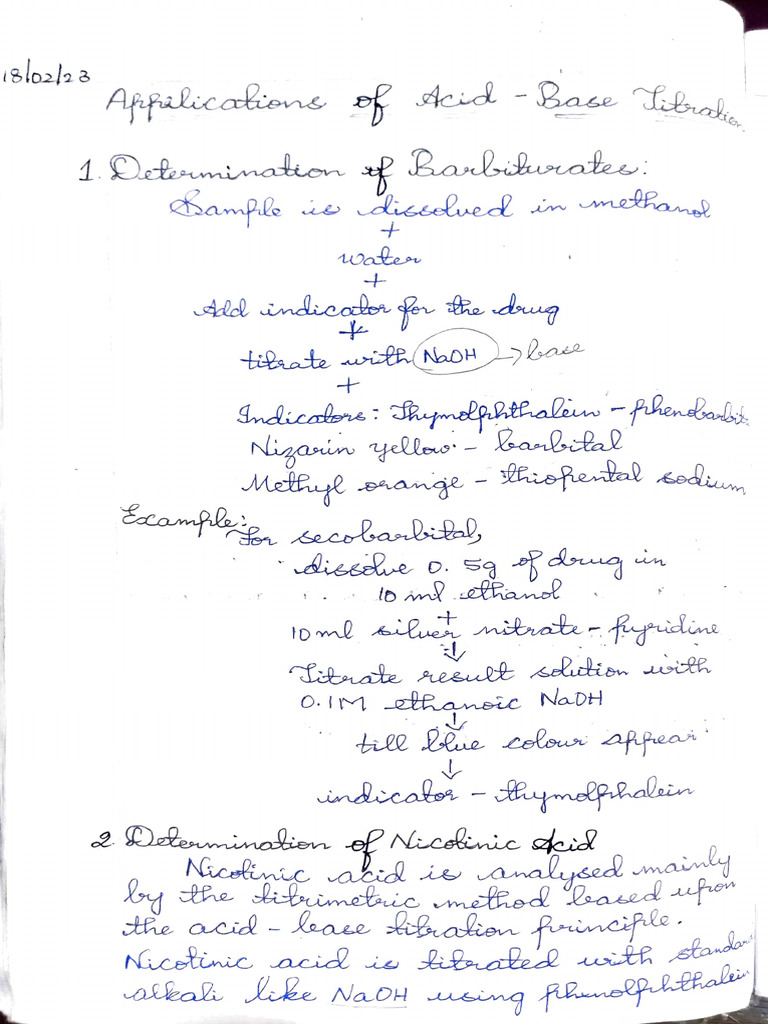 18/02/23
Applications of Acid - Base Titration
1. Determination of Barbiturates:
Sample is dissolved in methanol
+
water
+
Add indicator for the drug
+
titrate with NaOH → base
+
Indicators: Thymolphthalein - phenobarbit
Nizarin yellow - barbital
Methyl orange - thiopental sodium
Example:
For secobarbital,
dissolve 0.5g of drug in
10 ml ethanol
+
10 ml silver nitrate - pyridine
↓
Titrate result solution with
0.1M ethanoic NaOH
↓
till blue colour appear
↓
indicator - thymolphalein
2. Determination of Nicotinic Acid
Nicotinic acid is analysed mainly
by the titrimetric method based upon
the acid - base titration principle.
Nicotinic acid is titrated with standar
alkali like NaOH using phenolphthalein